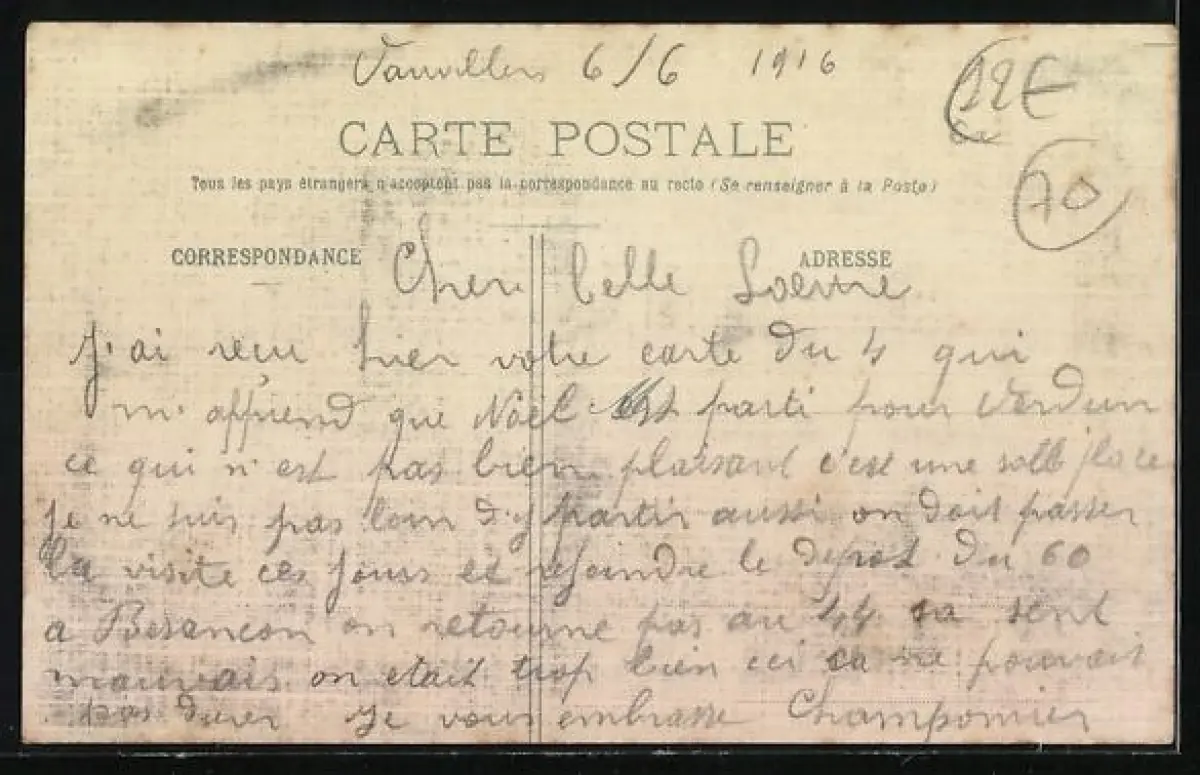 Vauvillers 6/6 1916
12E
CARTE POSTALE
70
Tous les pays étrangers n'acceptent pas la correspondance au recto (Se renseigner à la Poste)
CORRESPONDANCE
ADRESSE
Cher belle Soeur
J'ai reçu hier votre carte du 4 qui
m'apprend que Noël est parti pour Verdun
ce qui n'est pas bien plaisant c'est une place
Je ne suis pas loin d'y partir aussi on doit passer
la visite ces jours et rejoindre le depot du 60
a Besancon on retourne pas au 44 sa sent
mauvais on etait trop bien ici ca ne pouvait
pas durer Je vous embrasse Champonnier